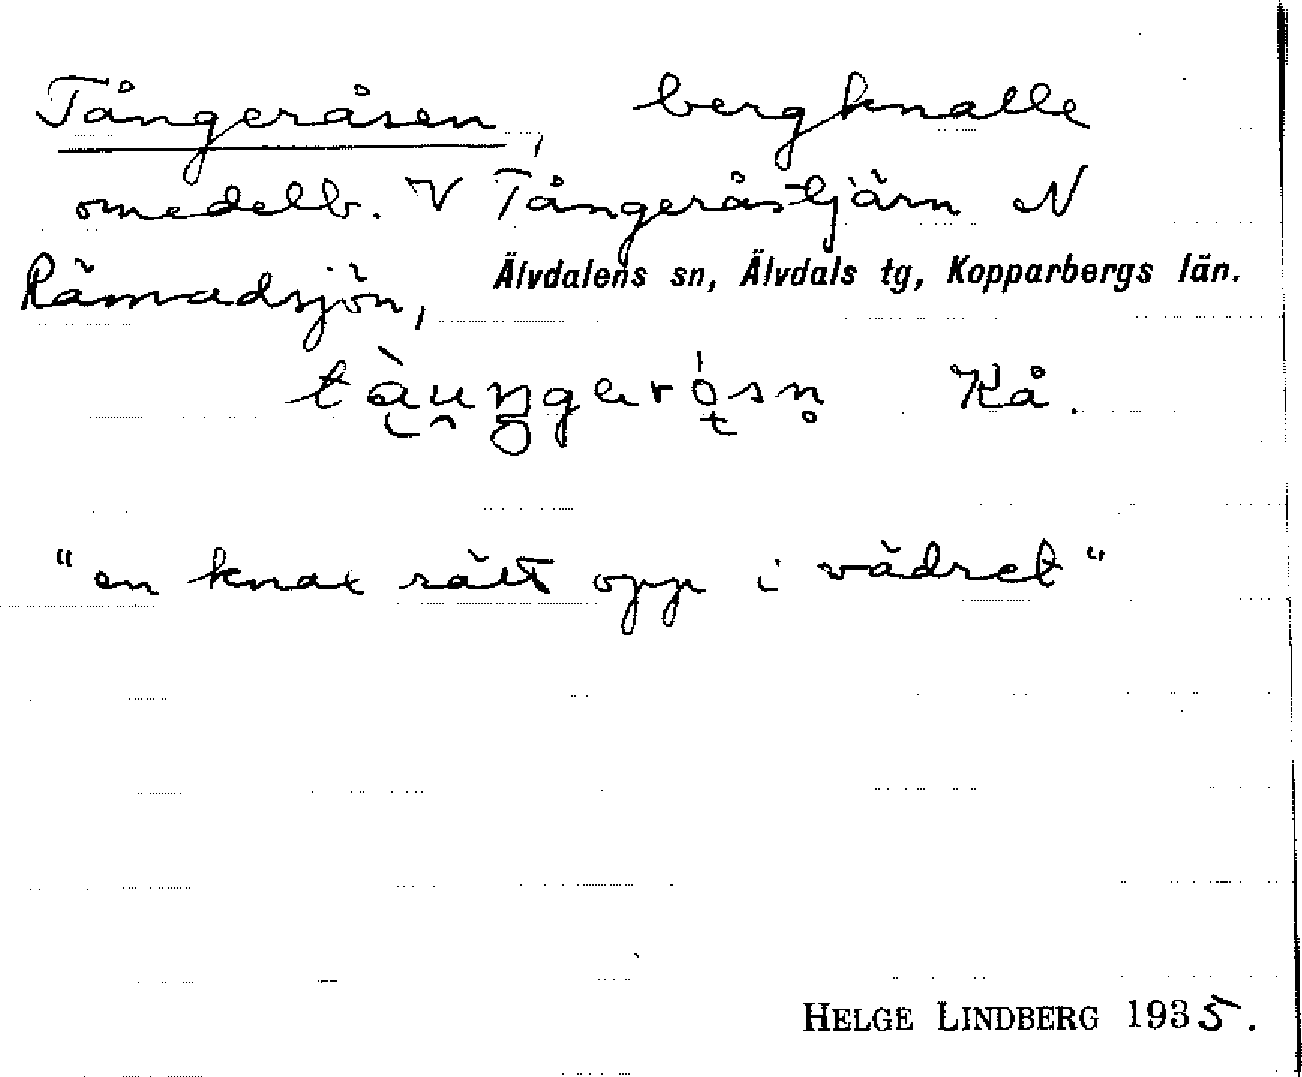 Tångeråsen, bergknalle
omedelb. V Tångeråstjärn N
Älvdalens sn, Älvdals tg, Kopparbergs län.
Råmadsjön,
Kå.
"en knax rätt opp i vädret"
HELGE LINDBERG 1935.